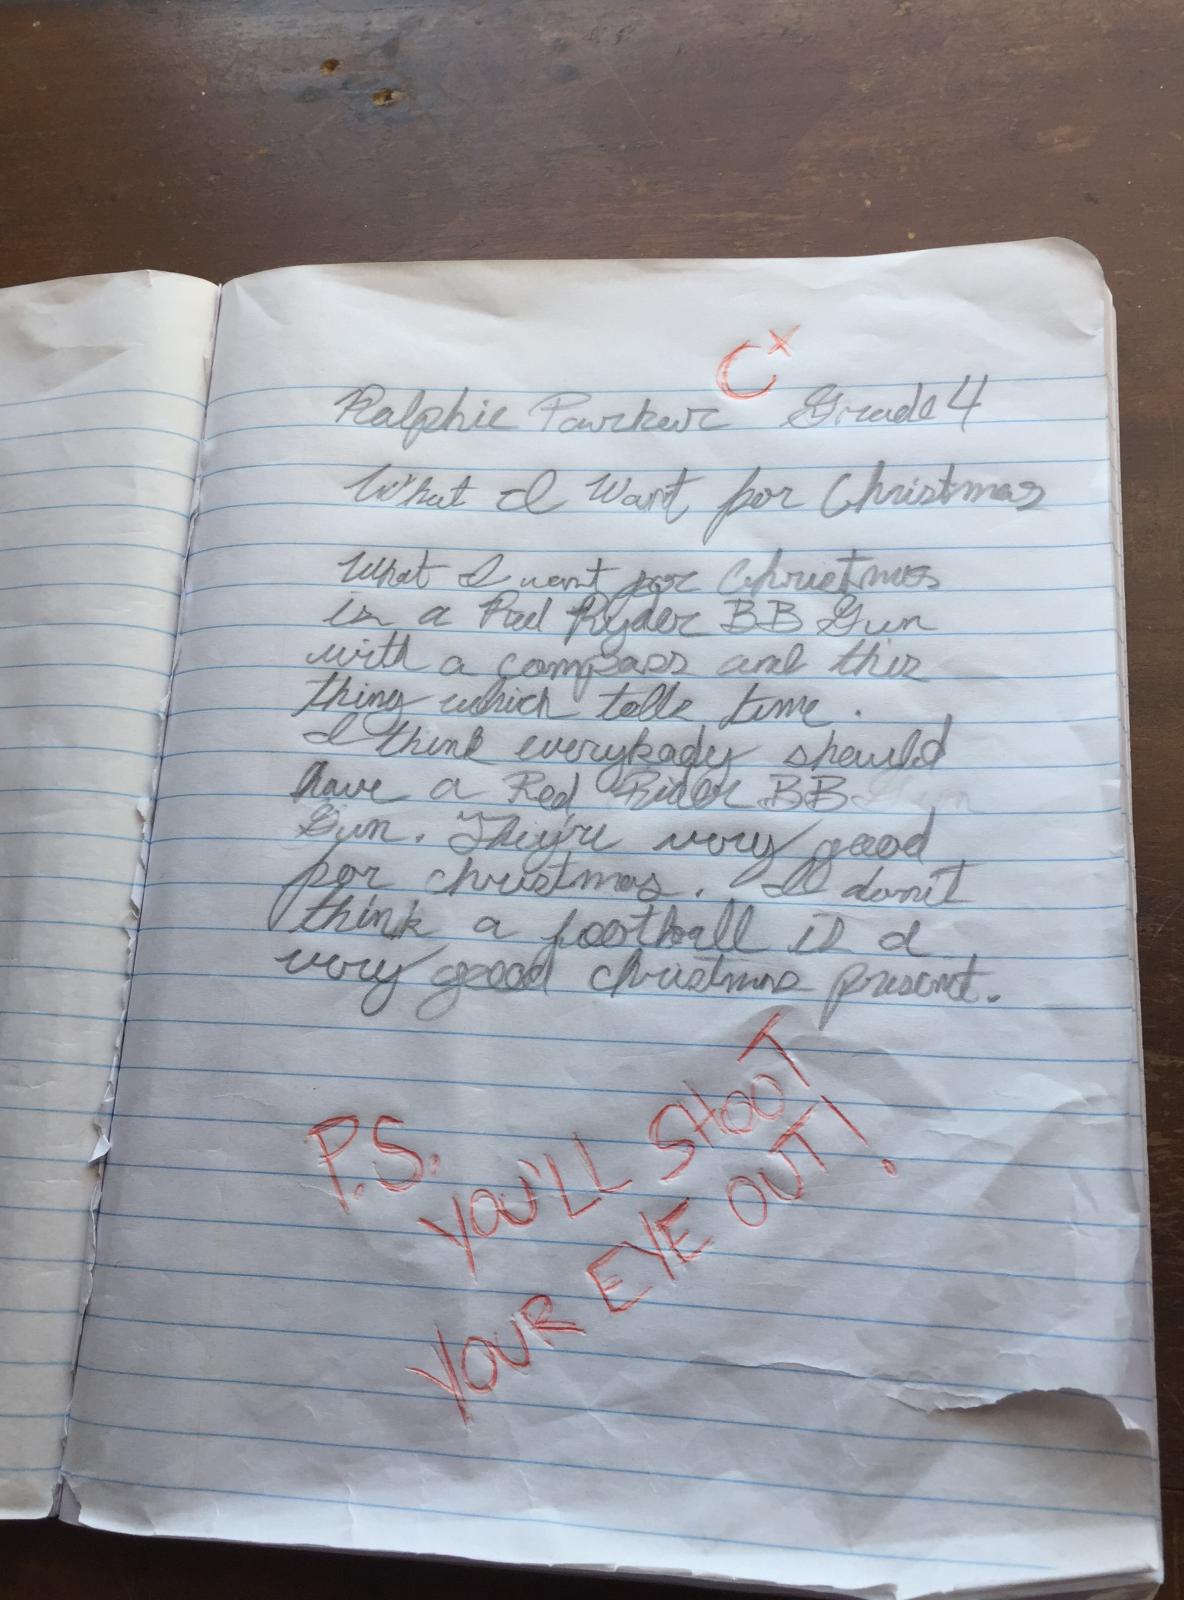 C+
Ralphie Parker Grade 4
What I Want for Christmas
What I want for Christmas
is a Red Ryder BB Gun
with a compass and this
thing which tells time.
I think everybody should
have a Red Rider BB Gun
Gun. They're very good
for christmas. I don't
think a football is a
very good christmas present.
P.S.
YOU'LL SHOOT
YOUR EYE OUT!